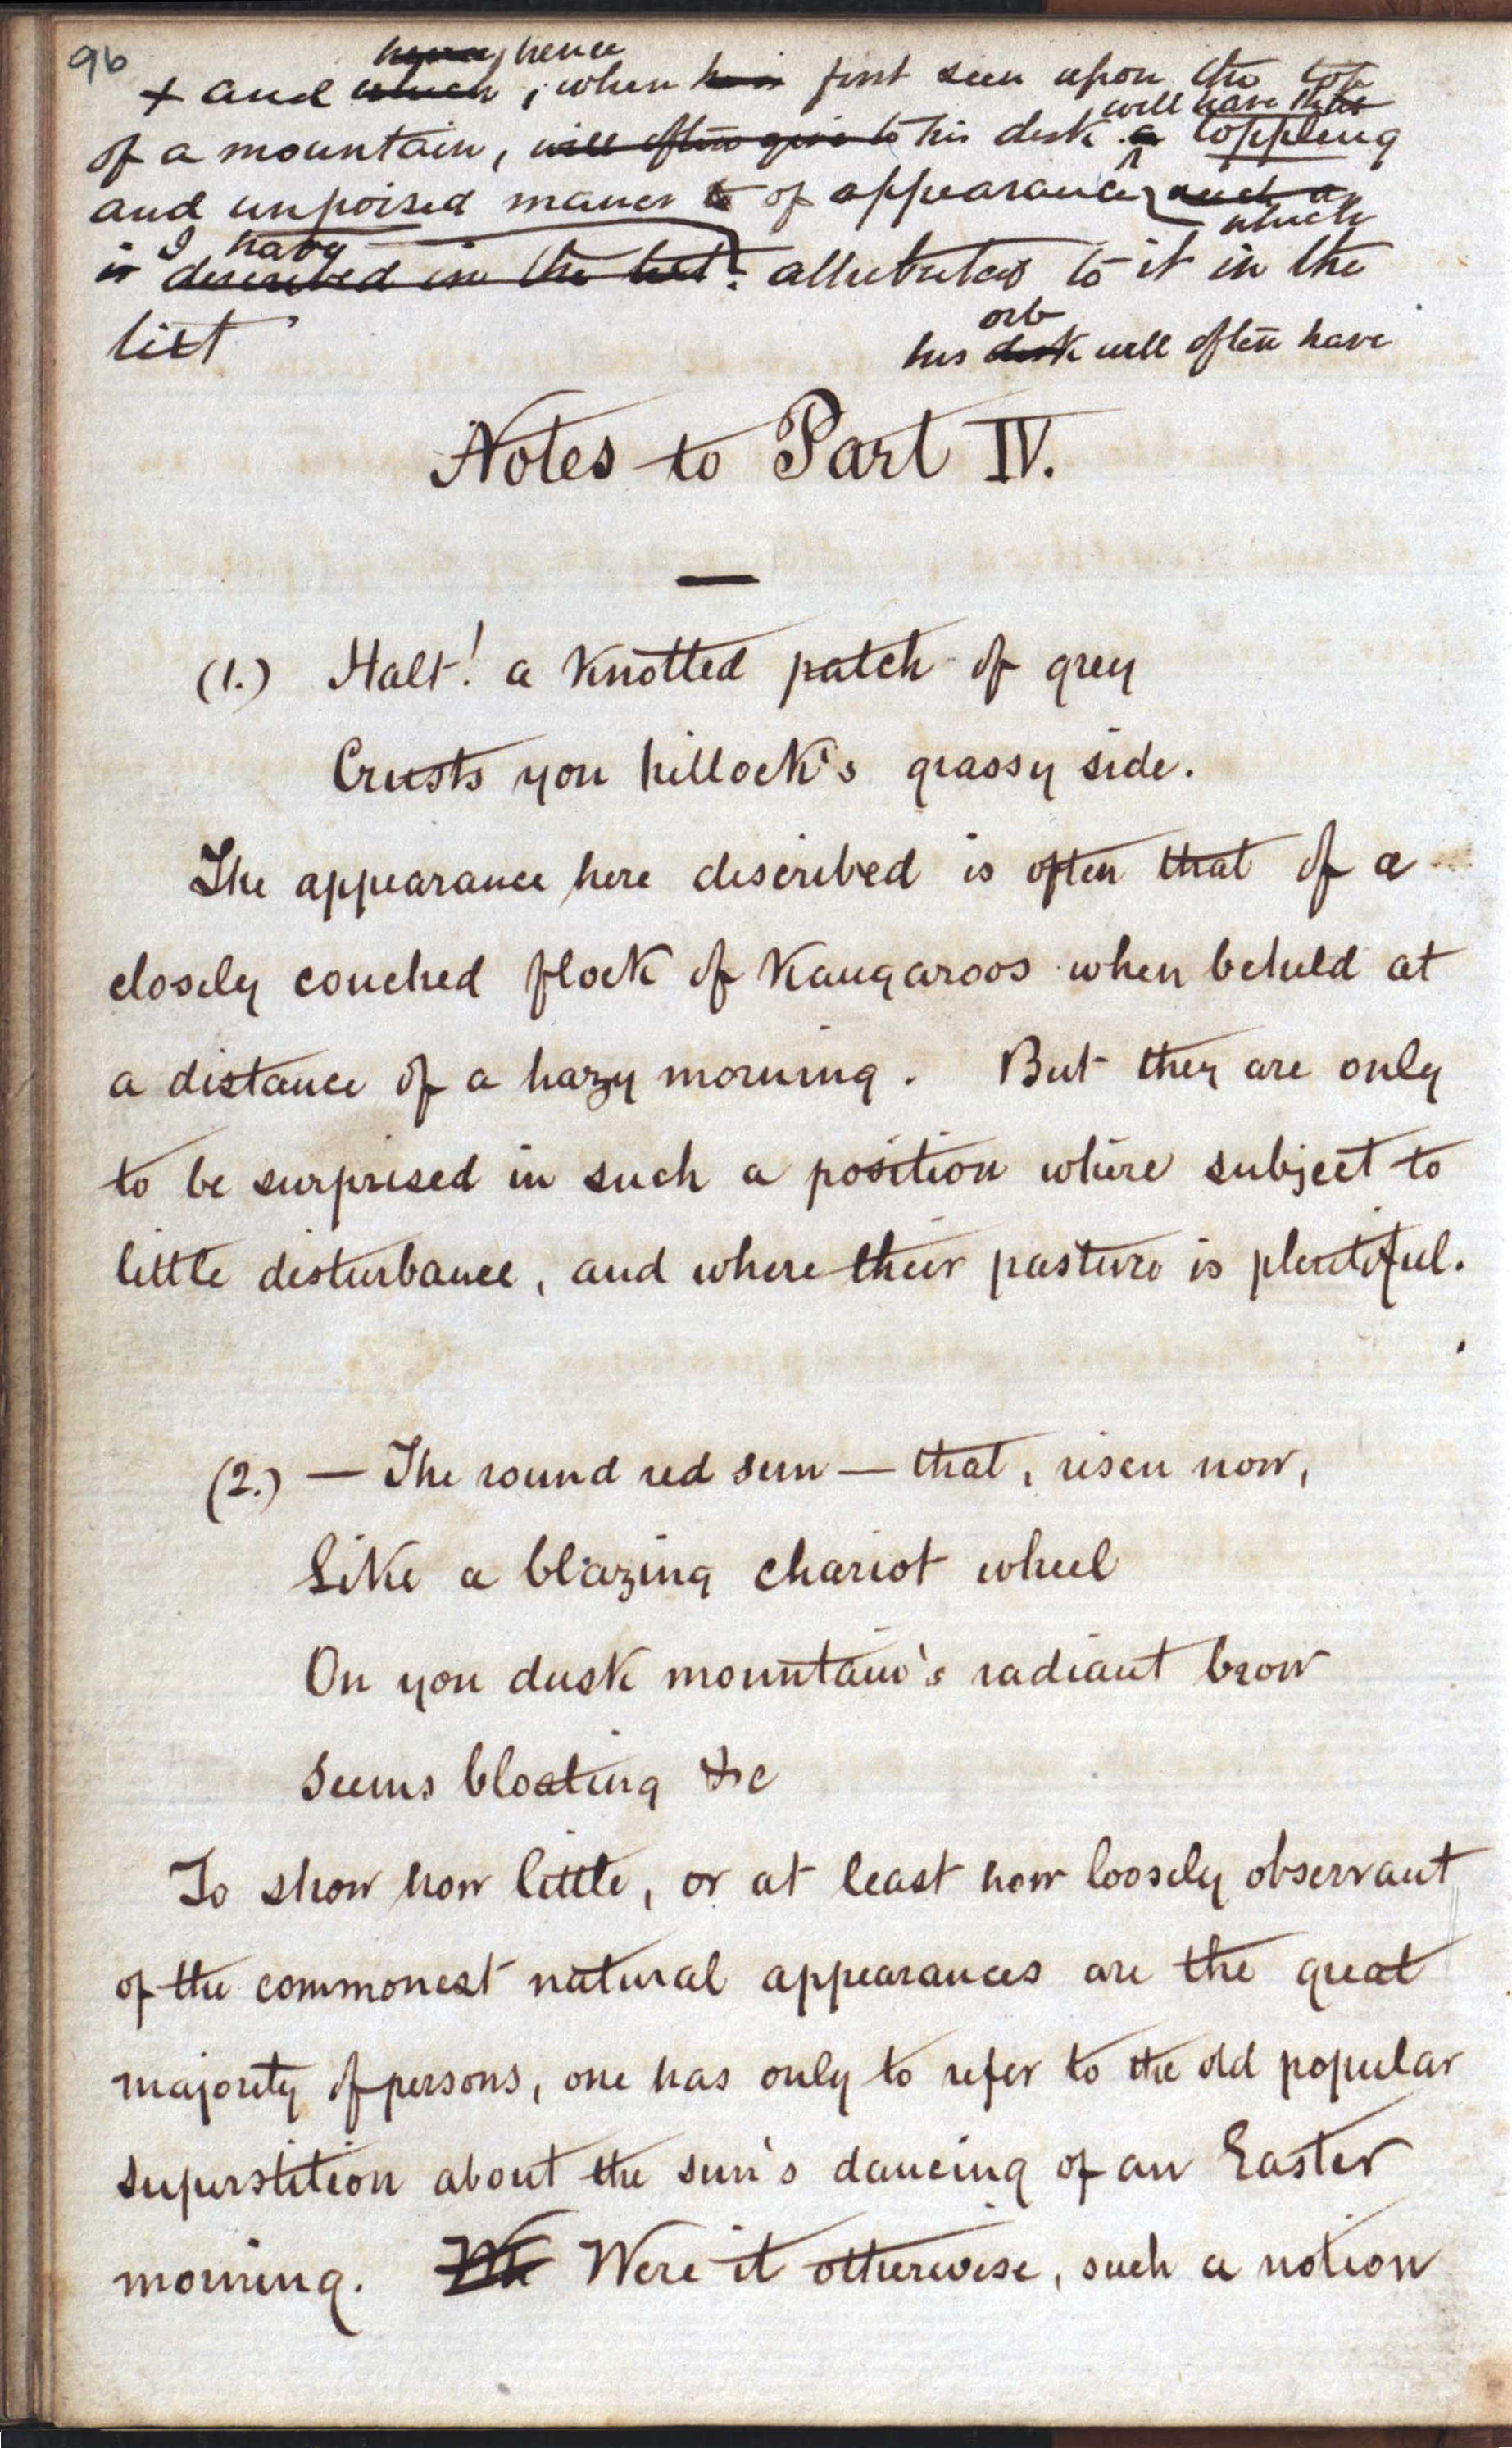 96
hence
+ and which, when he is first seen upon the top
will have that
of a mountain, will often give to his disk a toppling
and unpoised maner to of appearance such as
which
I have
is described in the text. attributed to it in the
text
orb
his disk will often have
Notes to Part IV.
—
(1.) Halt! a knotted patch of grey
Crusts yon hillock's grassy side.
The appearance here described is often that of a
closely couched flock of Kangaroos when beheld at
a distance of a hazy morning. But they are only
to be surprised in such a position where subject to
little disturbance, and where their pasture is plentiful.
(2.) — The round red sun — that, risen now,
Like a blazing chariot wheel
On yon dusk mountain's radiant brow
Seems bloating &c
To show how little, or at least how loosely observant
of the commonest natural appearances are the great
majority of persons, one has only to refer to the old popular
superstition about the sun's dancing of an Easter
morning. We Were it otherwise, such a notion